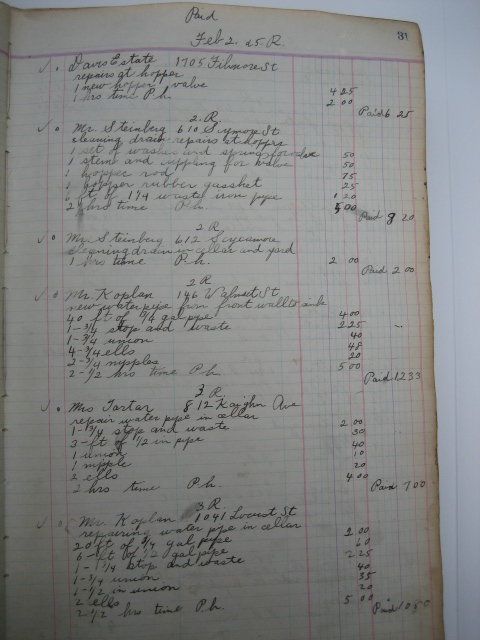 Paid
31
Feb 2 25 R.
Davis Estate 1705 Filmore St
repairs at hopper
1 new hopper valve 4 25
1 hrs time P.h. 2 00
Paid 6 25
2. R
Mr. Steinberg 610 Sycmor St
cleaning drain repairs at hoppre
1 set of washer and spring for 50
1 stem and cuppling for valve 50
1 hopper rod 75
1 hopper rubber gasshet 25
6 ft of 1 1/4 waste iron pipe 1 20
2 hrs time P.h. 5 00
Paid 8 20
2. R
Mr. Steinberg 612 Sycamore
cleaning drain in cellar and yard
1 hrs time P.h. 2 00
Paid 2 00
2 R
Mr. Koplan 146 Walnut St
new water pipe from front wall to sink
40 ft of 3/4 gal pipe 4 00
1-3/4 stop and waste 2 25
1-3/4 union 40
4-3/4 ells 48
2-3/4 nipples 20
2-1/2 hrs time P.h. 5 00
Paid 12 33
3. R.
Mrs Tartar 812 Kaighn Ave
repair water pipe in cellar
1-3/4 stop and waste 2 00
3-ft of 1/2 in pipe 30
1 union 40
1 nipple 10
2 ells 20
2 hrs time P.h. 4 00
Paid 7 00
3 R
Mr. Koplan 1041 Locust St
repairing water pipe in cellar
20 ft of 3/4 gal pipe 2 00
6-ft of 1/2 gal pipe 60
1-3/4 stop and waste 2 25
1-3/4 union 40
1-1/2 in union 35
2 ells 20
2 1/2 hrs time P.h. 5 00
Paid 10 50